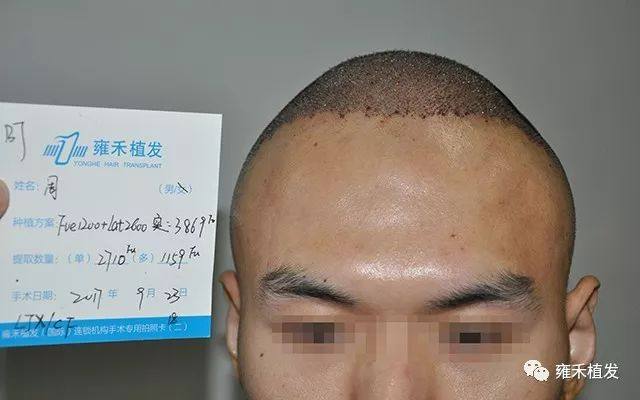 BJ
雍禾植发
YONGHE HAIR TRANSPLANT
姓名：周 （男/女）
种植方案：Fue1200+Lat2600 实：3869Fu
提取数量：（单）2710Fu（多）1159Fu
手术日期：2017年9月23日
雍禾植发（国际）连锁机构手术专用拍照卡（二）
雍禾植发